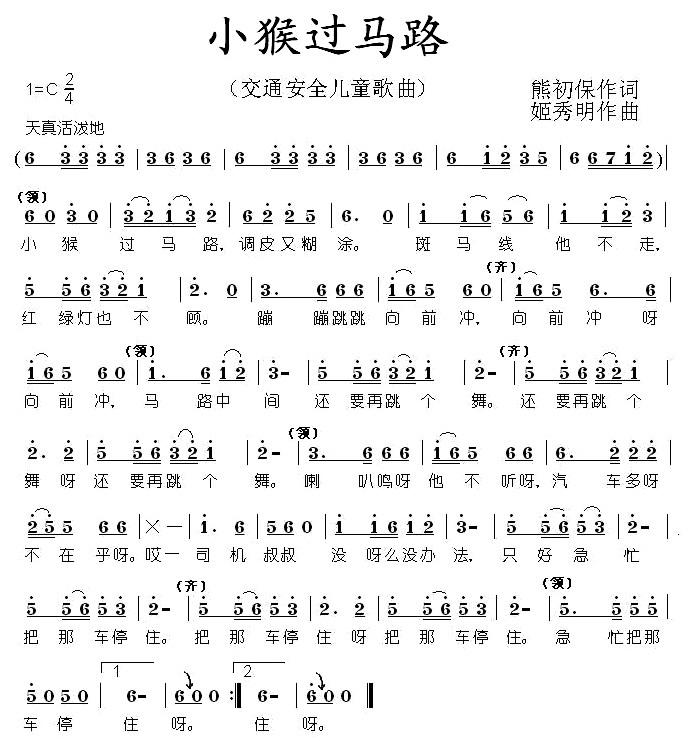 小猴过马路
1=C 2/4 （交通安全儿童歌曲） 熊初保作词
天真活泼地 姬秀明作曲
(6 3 3 3 3 | 3 6 3 6 | 6 3 3 3 3 | 3 6 3 6 | 6 1 2 3 5 | 6 6 7 1 2)|
(领)
6 0 3 0 | 3 2 1 3 2 | 6 2 2 2 | 6. 0 | 1 1 6 5 6 | 1 1 2 3 |
小 猴 过 马 路，调皮又糊 涂。 斑 马 线 他 不 走，
(齐)
5 5 6 3 2 1 | 2. 0 | 3. 6 6 6 | 1 6 5 6 0 | 1 6 5 6. 6 |
红 绿灯也 不 顾。 蹦 蹦跳跳 向 前 冲， 向 前 冲 呀
(领) (齐)
1 6 5 6 0 | 1. 6 1 2 | 3- | 5 5 6 3 2 1 | 2- | 5 5 6 3 2 1 |
向 前 冲， 马 路中 间 还 要再跳 个 舞。还 要再跳 个
(领)
2. 2 | 5 5 6 3 2 1 | 2- | 3. 6 6 6 | 1 6 5 6 6 | 6. 2 2 2 |
舞 呀 还 要再跳 个 舞。喇 叭鸣呀 他 不 听呀，汽 车多呀
2 5 5 6 6 | X — | 1. 6 | 5 0 5 0 | 1 1 6 1 2 | 3- | 5 5 6 5 3 | 2- |
不 在 乎呀。哎一 司 机 叔叔 没 呀么没办 法，只 好 急 忙
(齐) (领)
5 5 6 5 3 | 2- | 5 5 6 5 3 | 2. 2 | 5 5 6 5 3 | 2- | 5. 5 5 5 |
把 那 车停 住。把 那 车停 住 呀 把 那 车停 住。急 忙把那
1 2
5 0 5 0 | 6- | 6 0 0 :| 6- | 6 0 0 |
车 停 住 呀。 住 呀。